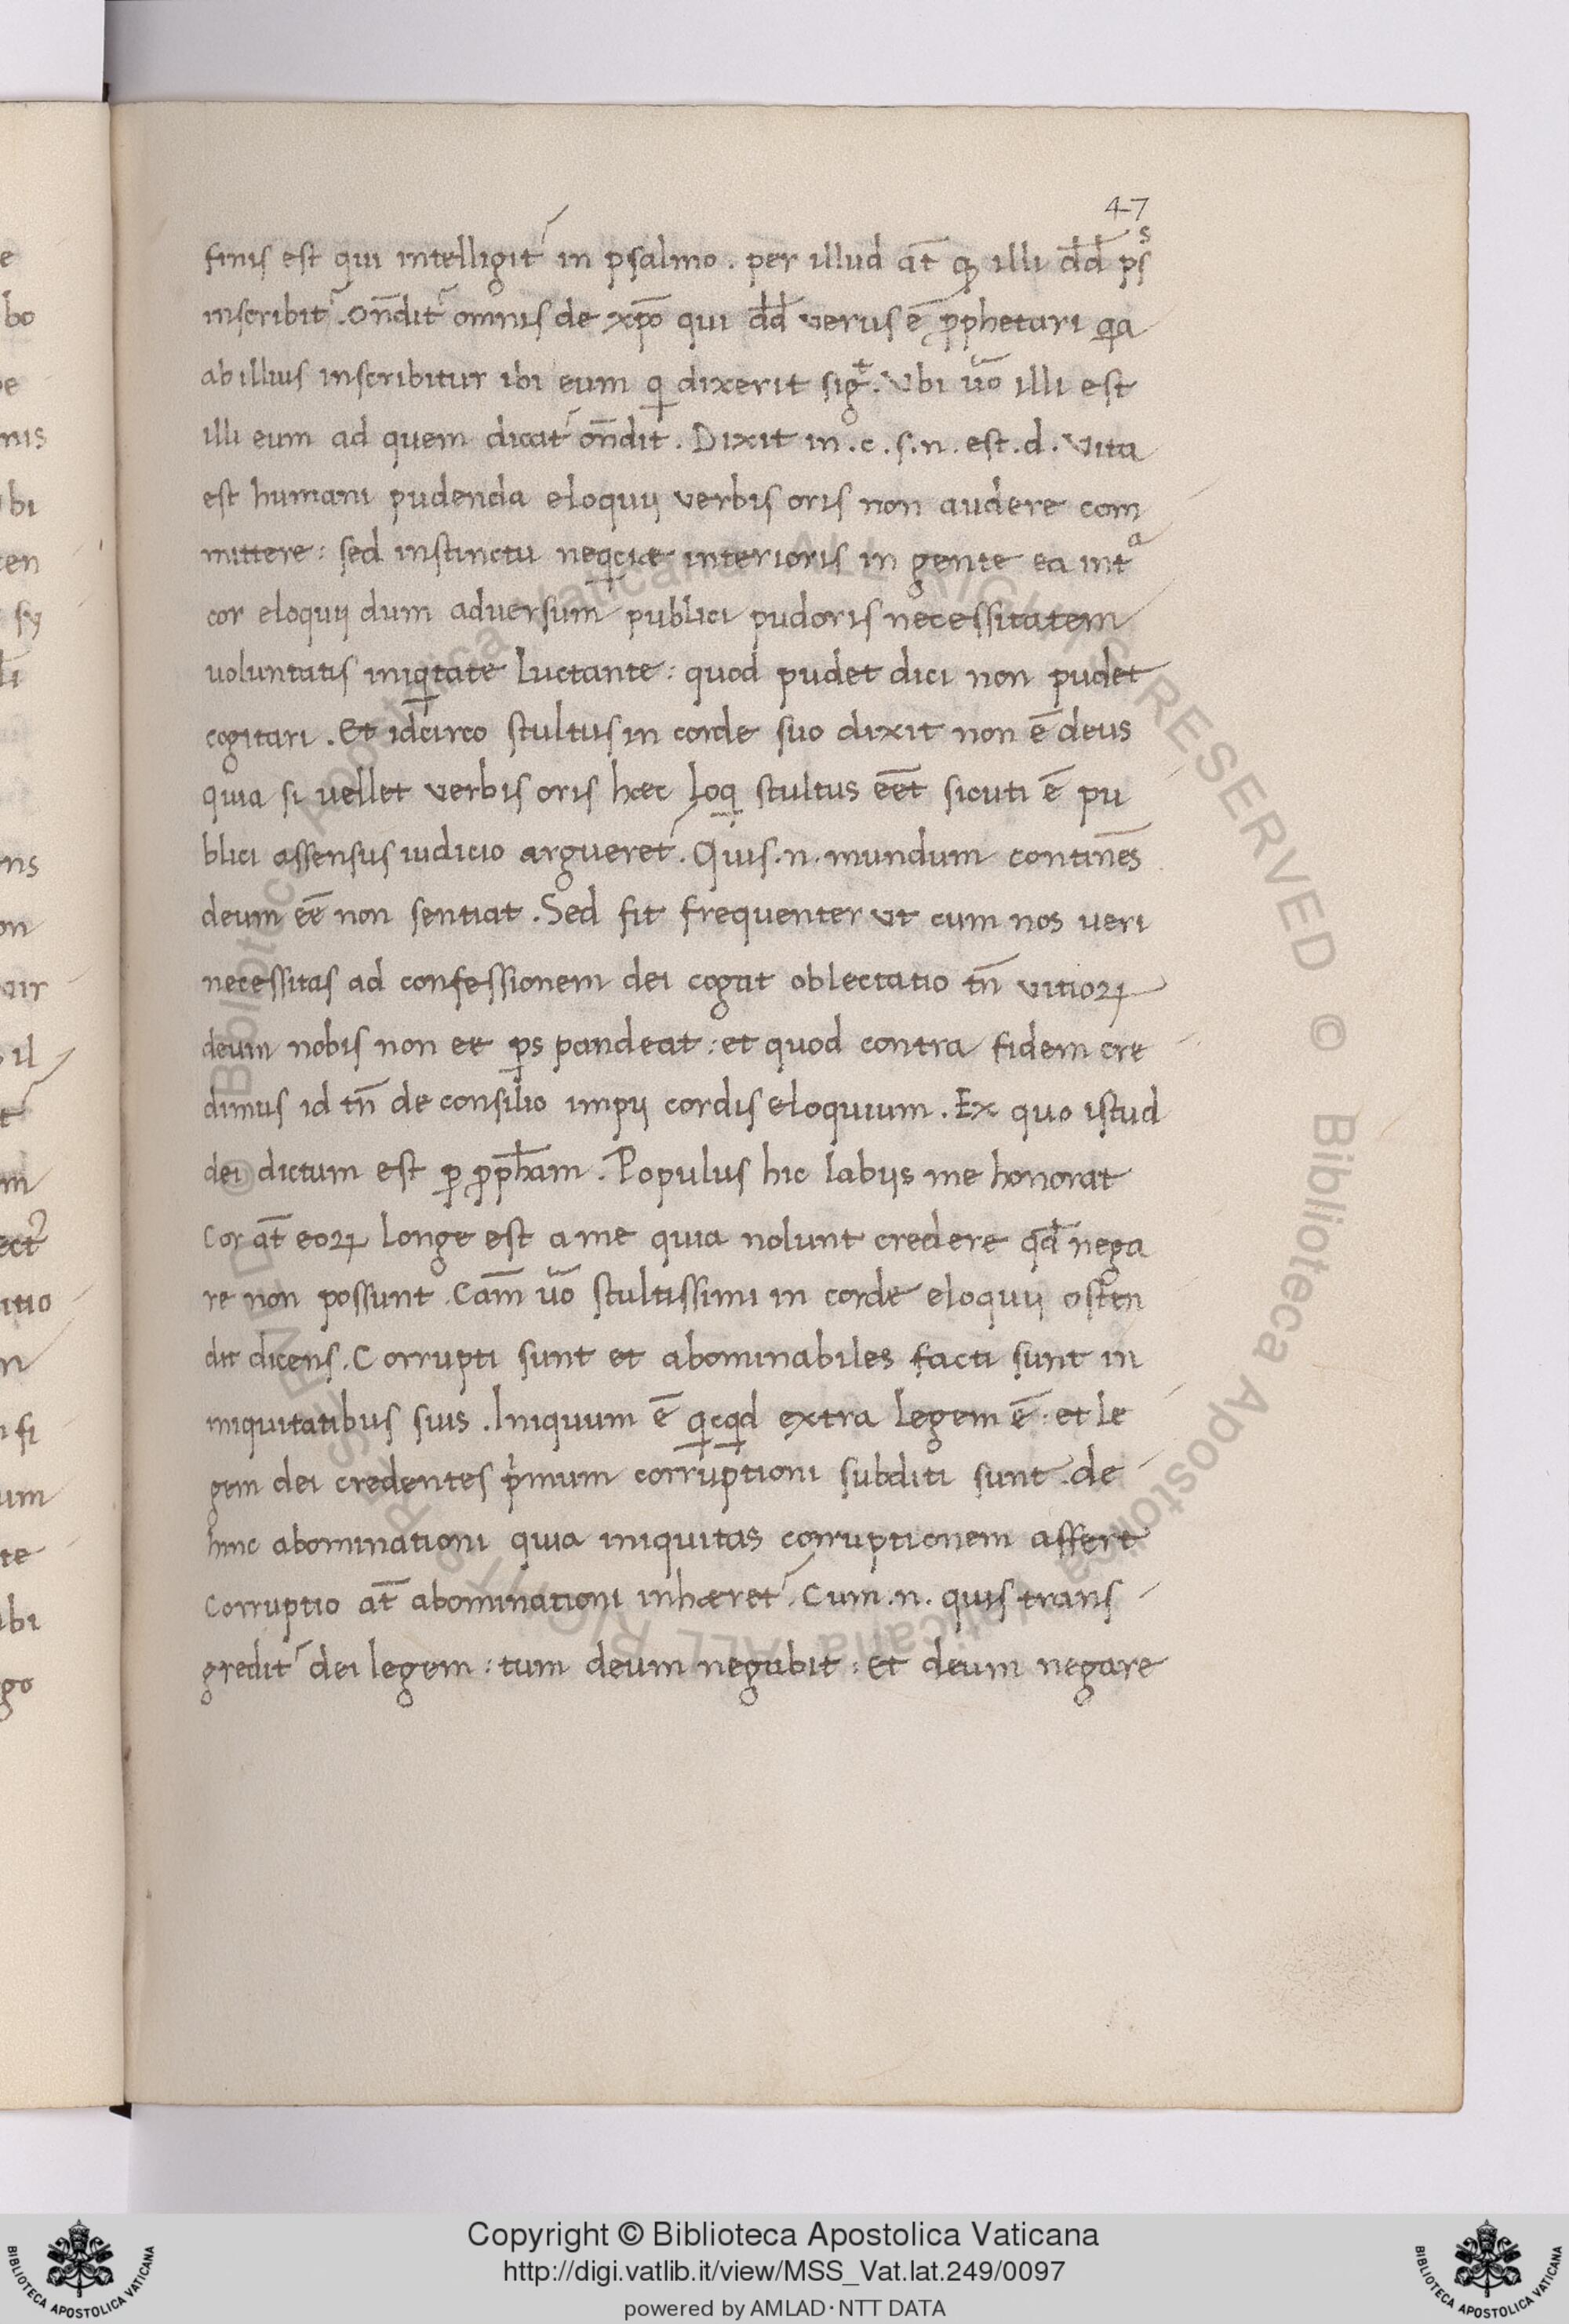 47
finis est qui intelligit᷑ in psalmo . per illud at̅ qꝫ illi dd̅ psˢ
inscribit᷑ . on̅dit᷑ omnis de xp̅o qui dd̅ verus e̅ ꝓphetari qa
ab illius inscribitur ibi eum ꝗ dixerit sig̅ᵗ . Vbi u̅o illi est
illi eum ad quem dicat᷑ on̅dit . Dixit in . c . s . n . est . d . Vita
est humani pudenda eloquij verbis oris non audere com
mittere : sed instinctu neꝗciæ interioris in gente ea intᵃ
cor eloquij dum adversum publici pudoris necessitatem
uoluntatis iniꝗtate luctante : quod pudet dici non pudet
cogitari . Et idcirco stultus in corde suo dixit non e̅ deus
quia si vellet verbis oris hæc loꝗ stultus ee̅t sicuti e̅ pu
blici assensus iudicio argueret᷑ . Quis . n . mundum contine̅s
deum ee̅ non sentiat . Sed fit frequenter ut cum nos veri
necessitas ad confessionem dei cogat oblectatio tn̅ vitioꝝ
deum nobis non ee ꝑs pandeat : et quod contra fidem cre
dimus id tn̅ de consilio impij cordis eloquium . Ex quo istud
dei dictum est ꝑ ꝓph̅am . Populus hic labijs me honorat
Cor at̅ eoꝝ longe est a me quia nolunt credere qd̅ nega
re non possunt . Cam̅ u̅o stultissimi in corde eloquij osten
dit dicens . Corrupti sunt et abominabiles facti sunt in
iniquitatibus suis . Iniquum e̅ ꝗcꝗd extra legem e̅ : et le
gem dei credentes pⁱmum corruptioni subditi sunt . de
hinc abominationi quia iniquitas corruptionem affert
Corruptio at̅ abominationi inhæret᷑ . Cum . n . quis trans
gredit᷑ dei legem : tum deum negabit : Et deum negare
Copyright © Biblioteca Apostolica Vaticana
http://digi.vatlib.it/view/MSS_Vat.lat.249/0097
powered by AMLAD·NTT DATA